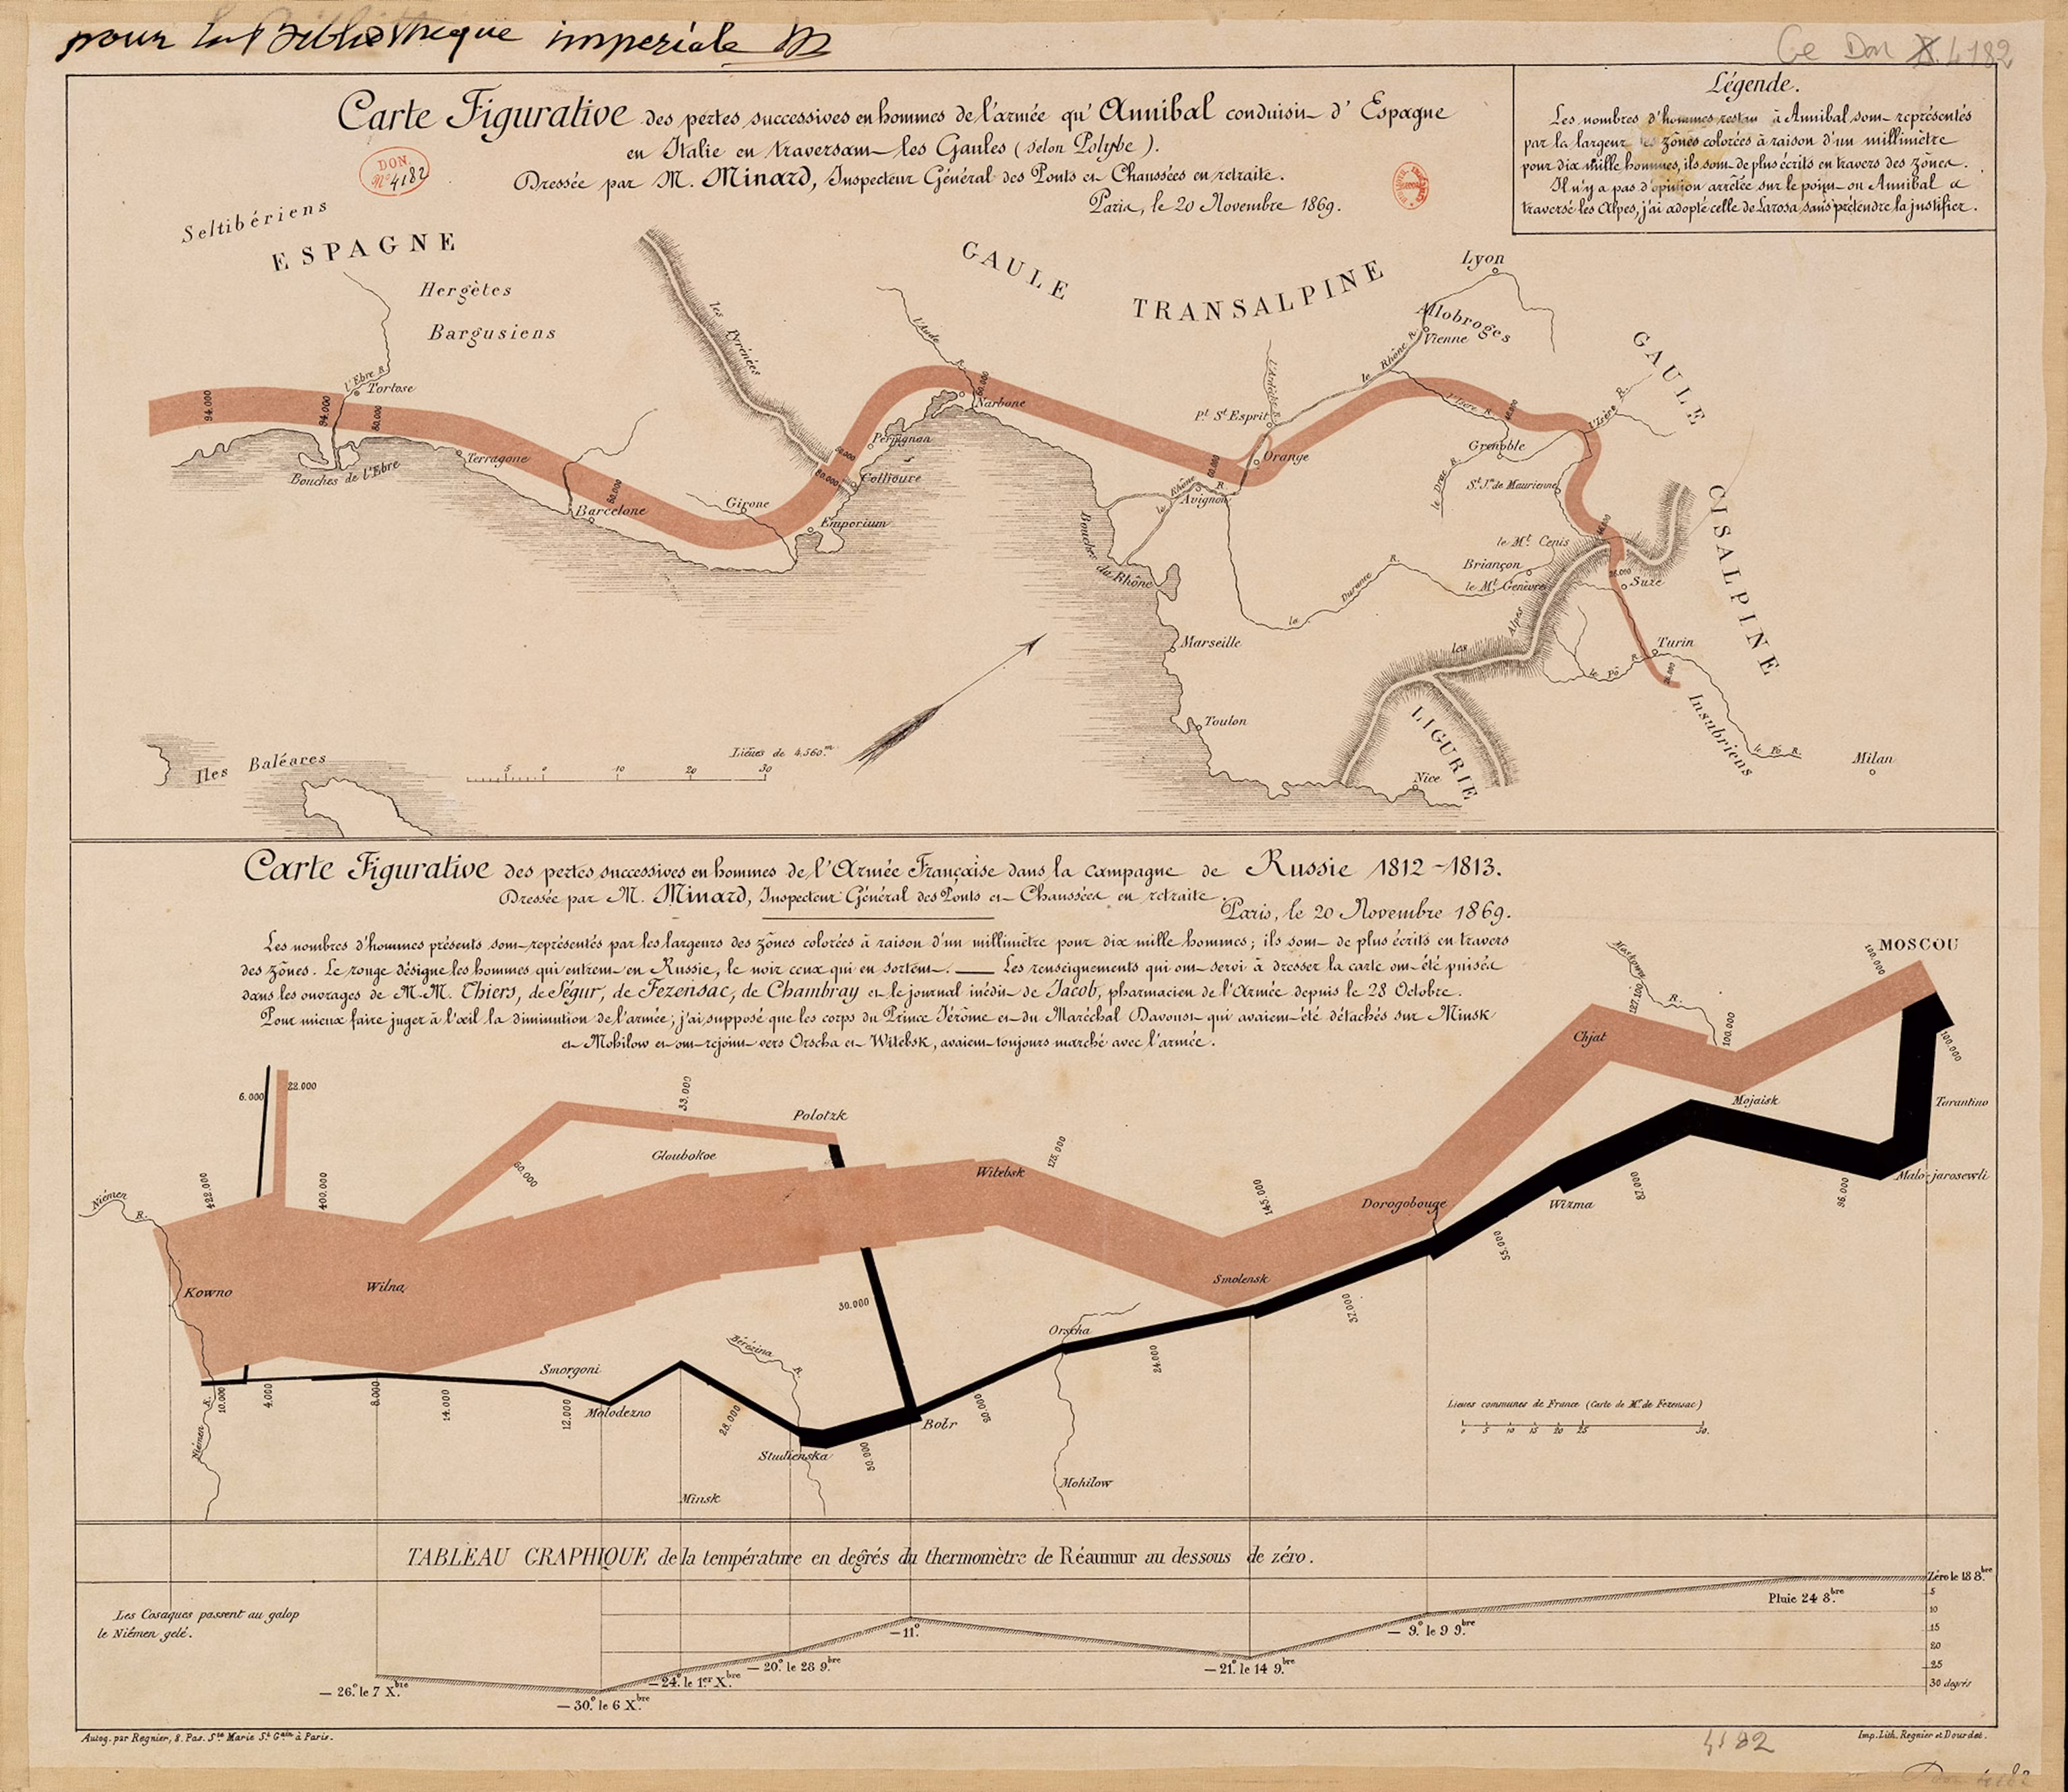 pour la Bibliothèque impériale
Ge Don 4182
Carte Figurative des pertes successives en hommes de l'armée qu'Annibal conduisit d'Espagne
en Italie en traversant les Gaules (selon Polybe).
Dressée par M. Minard, Inspecteur Général des Ponts et Chaussées en retraite.
Paris, le 20 Novembre 1869.
DON.
No 4182
Légende.
Les nombres d'hommes restant à Annibal sont représentés
par la largeur des zônes colorées à raison d'un millimètre
pour dix mille hommes, ils sont de plus écrits en travers des zônes.
Il n'y a pas d'opinion arrêtée sur le point où Annibal a
traversé les Alpes, j'ai adopté celle de Larosa sans prétendre la justifier.
Seltibériens
ESPAGNE
Hergètes
Bargusiens
les Pyrénées
GAULE TRANSALPINE
Lyon
Allobroges
Vienne
le Rhône R.
GAULE CISALPINE
l'Aude R.
l'Ardèche R.
l'Ebre R.
Tortose
94.000
94.000
80.000
Terragone
Bouches de l'Ebre
Barcelone
80.000
Girone
Emporium
60.000
60.000
Collioure
Perpignan
60.000
Narbone
Pt. St. Esprit
Orange
60.000
Avignon
le Rhône R.
l'Isère R.
l'Isère R.
Grenoble
le Drac R.
St. Jn. de Maurienne
le Mt. Cenis
Briançon
le Mt. Genèvre
26.000
Suze
Turin
26.000
le Pô R.
le Pô R.
Insubriens
Milan
Bouches du Rhône
la Durance R.
les Alpes
Marseille
Toulon
LIGURIE
Nice
Iles Baléares
Lieues de 4.560.m
5 0 10 20 30
Carte Figurative des pertes successives en hommes de l'Armée Française dans la campagne de Russie 1812-1813.
Dressée par M. Minard, Inspecteur Général des Ponts et Chaussées en retraite.
Paris, le 20 Novembre 1869.
Les nombres d'hommes présents sont représentés par les largeurs des zônes colorées à raison d'un millimètre pour dix mille hommes; ils sont de plus écrits en travers
des zônes. Le rouge désigne les hommes qui entrent en Russie, le noir ceux qui en sortent. — Les renseignements qui ont servi à dresser la carte ont été puisés
dans les ouvrages de M.M. Thiers, de Ségur, de Fezensac, de Chambray et le journal inédit de Jacob, pharmacien de l'Armée depuis le 28 Octobre.
Pour mieux faire juger à l'œil la diminution de l'armée, j'ai supposé que les corps du Prince Jérôme et du Maréchal Davoust qui avaient été détachés sur Minsk
et Mohilow et ont rejoint vers Orscha et Witebsk, avaient toujours marché avec l'armée.
MOSCOU
100.000
100.000
Moskowa R.
127.100
100.000
Chjat
Mojaisk
Tarantino
Malo-jarosewli
6.000
22.000
422.000
400.000
60.000
33.000
Gloubokoe
Polotzk
Witebsk
175.000
145.000
Dorogobouge
Wizma
55.000
87.000
96.000
Niémen R.
Kowno
Wilna
30.000
Smolensk
37.000
Orscha
24.000
Bérézina R.
Smorgoni
Molodezno
10.000
4.000
8.000
14.000
12.000
28.000
Studienska
50.000
Bobr
20.000
Niémen R.
Minsk
Mohilow
Lieues communes de France (Carte de M. de Fezensac)
0 5 10 15 20 25 50.
TABLEAU GRAPHIQUE de la température en degrés du thermomètre de Réaumur au dessous de zéro.
Les Cosaques passent au galop
le Niémen gelé.
Zéro le 18 8.bre
5
10
15
20
25
30 degrés
Pluie 24 8.bre
— 9.° le 9 9.bre
— 21.° le 14 9.bre
— 11.°
— 20.° le 28 9.bre
— 24.° le 1.er X.bre
— 30.° le 6 X.bre
— 26.° le 7 X.bre
Autog. par Regnier, 8. Pas. Ste Marie St Gain à Paris.
4182
Imp. Lith. Regnier et Dourdet.